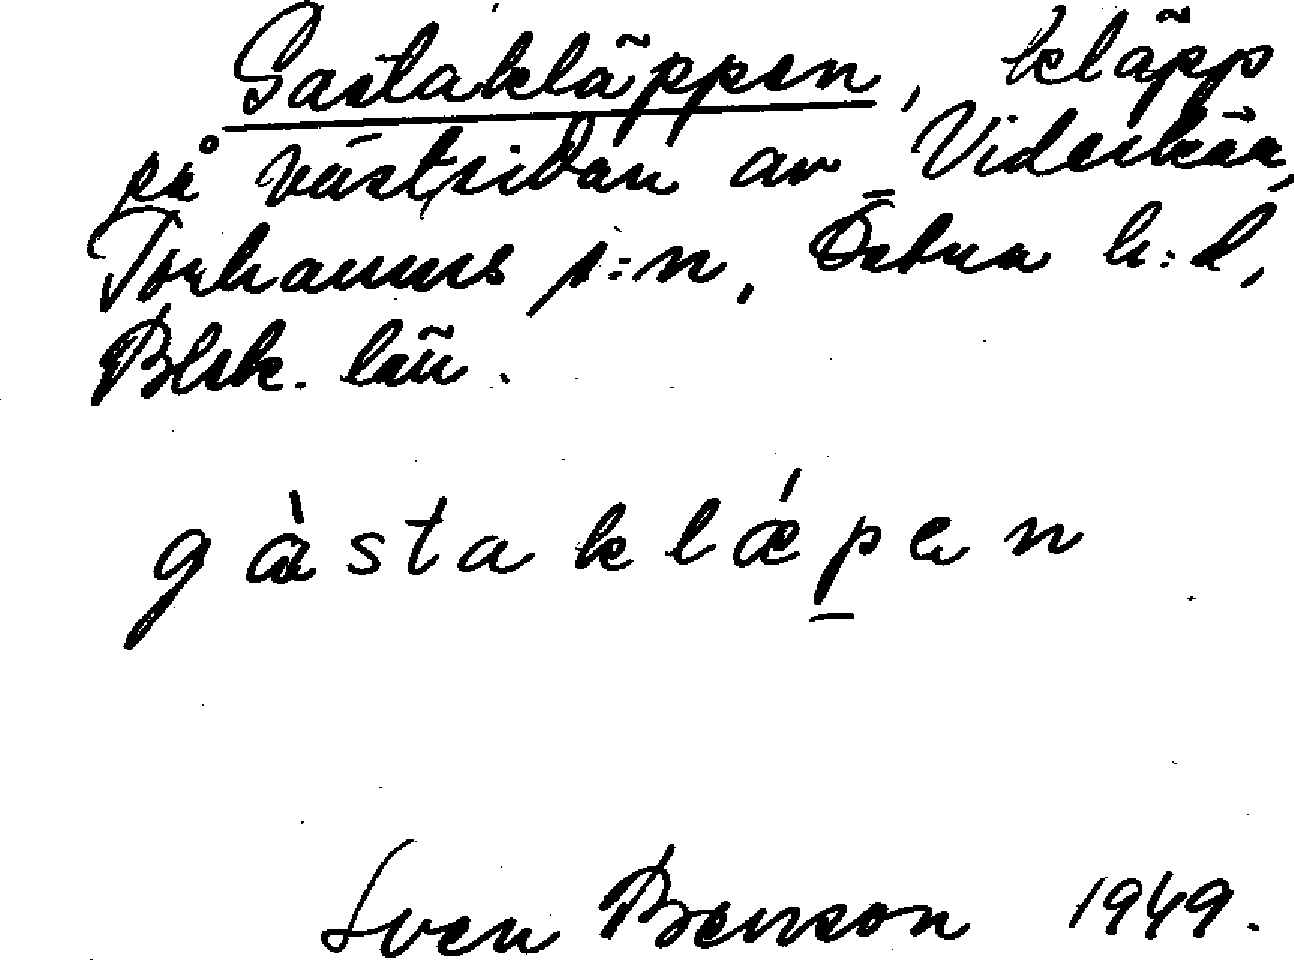 Gastakläppen, kläpp
på västsidan av Videskär,
Torhamns s:n, Östra h:d,
Blek. län.
gàstaklǽpen
Sven Benson 1949.